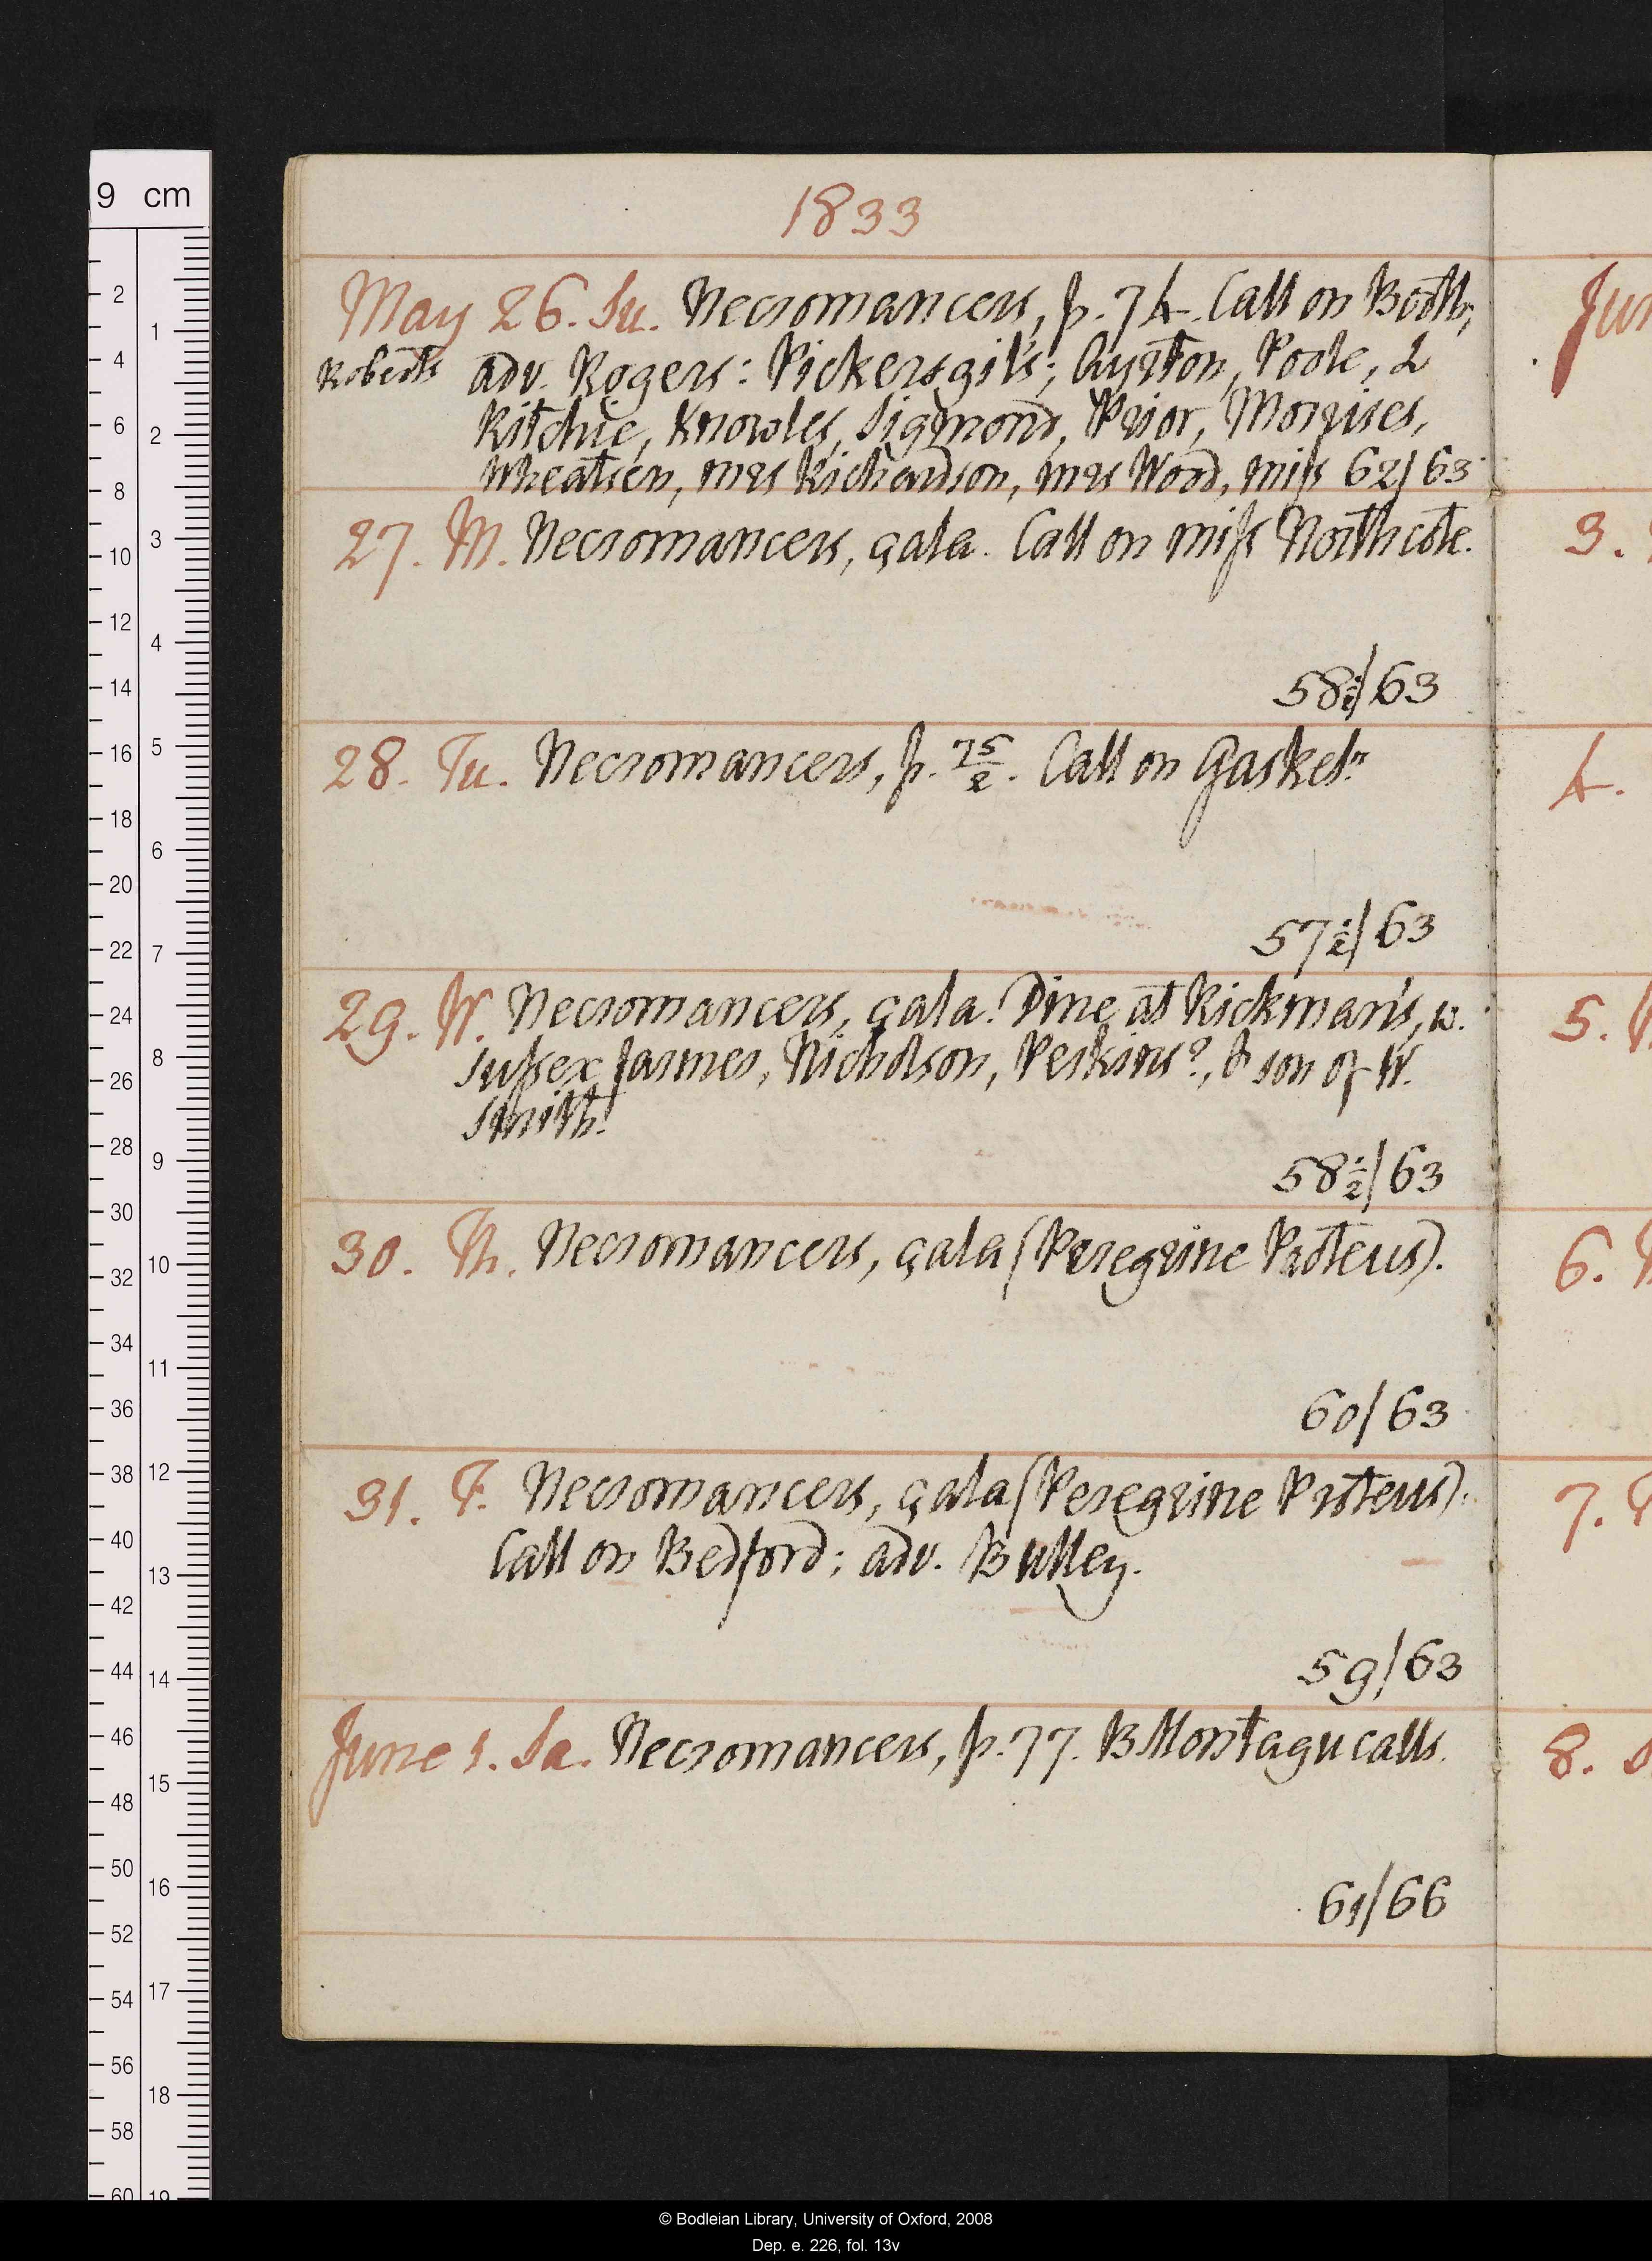 9 cm
1833
May 26. Su. Necromancers, p. 74. Call on Booth;
Roberts adv. Rogers: Pickersgil's; Ayrton, Poole, 2
Ritchie, Knowles, Sigmond, Prior, Morrises,
Wheatsen, mrs Richardson, mrs Wood, miss 62/63
27. M. Necromancers, çala. Call on miss Northcote.
58½/63
28. Tu. Necromancers, p. 75/2. Call on Gaskel:n
57½/63
29. W. Necromancers, çala. Dine at Rickman's, w.
Sussex farmer, Nicholson, Perkins?, & son of W.
Smith!
58½/63
30. Th. Necromancers, çala (Peregrine Proteus).
60/63
31. F. Necromancers, çala (Peregrine Proteus).
Call on Bedford; adv. Bulley.
59/63
June 1. Sa. Necromancers, p. 77. B Montagu calls.
61/66
Jun
3.
4.
5.
6.
7.
8.
© Bodleian Library, University of Oxford, 2008
Dep. e. 226, fol. 13v